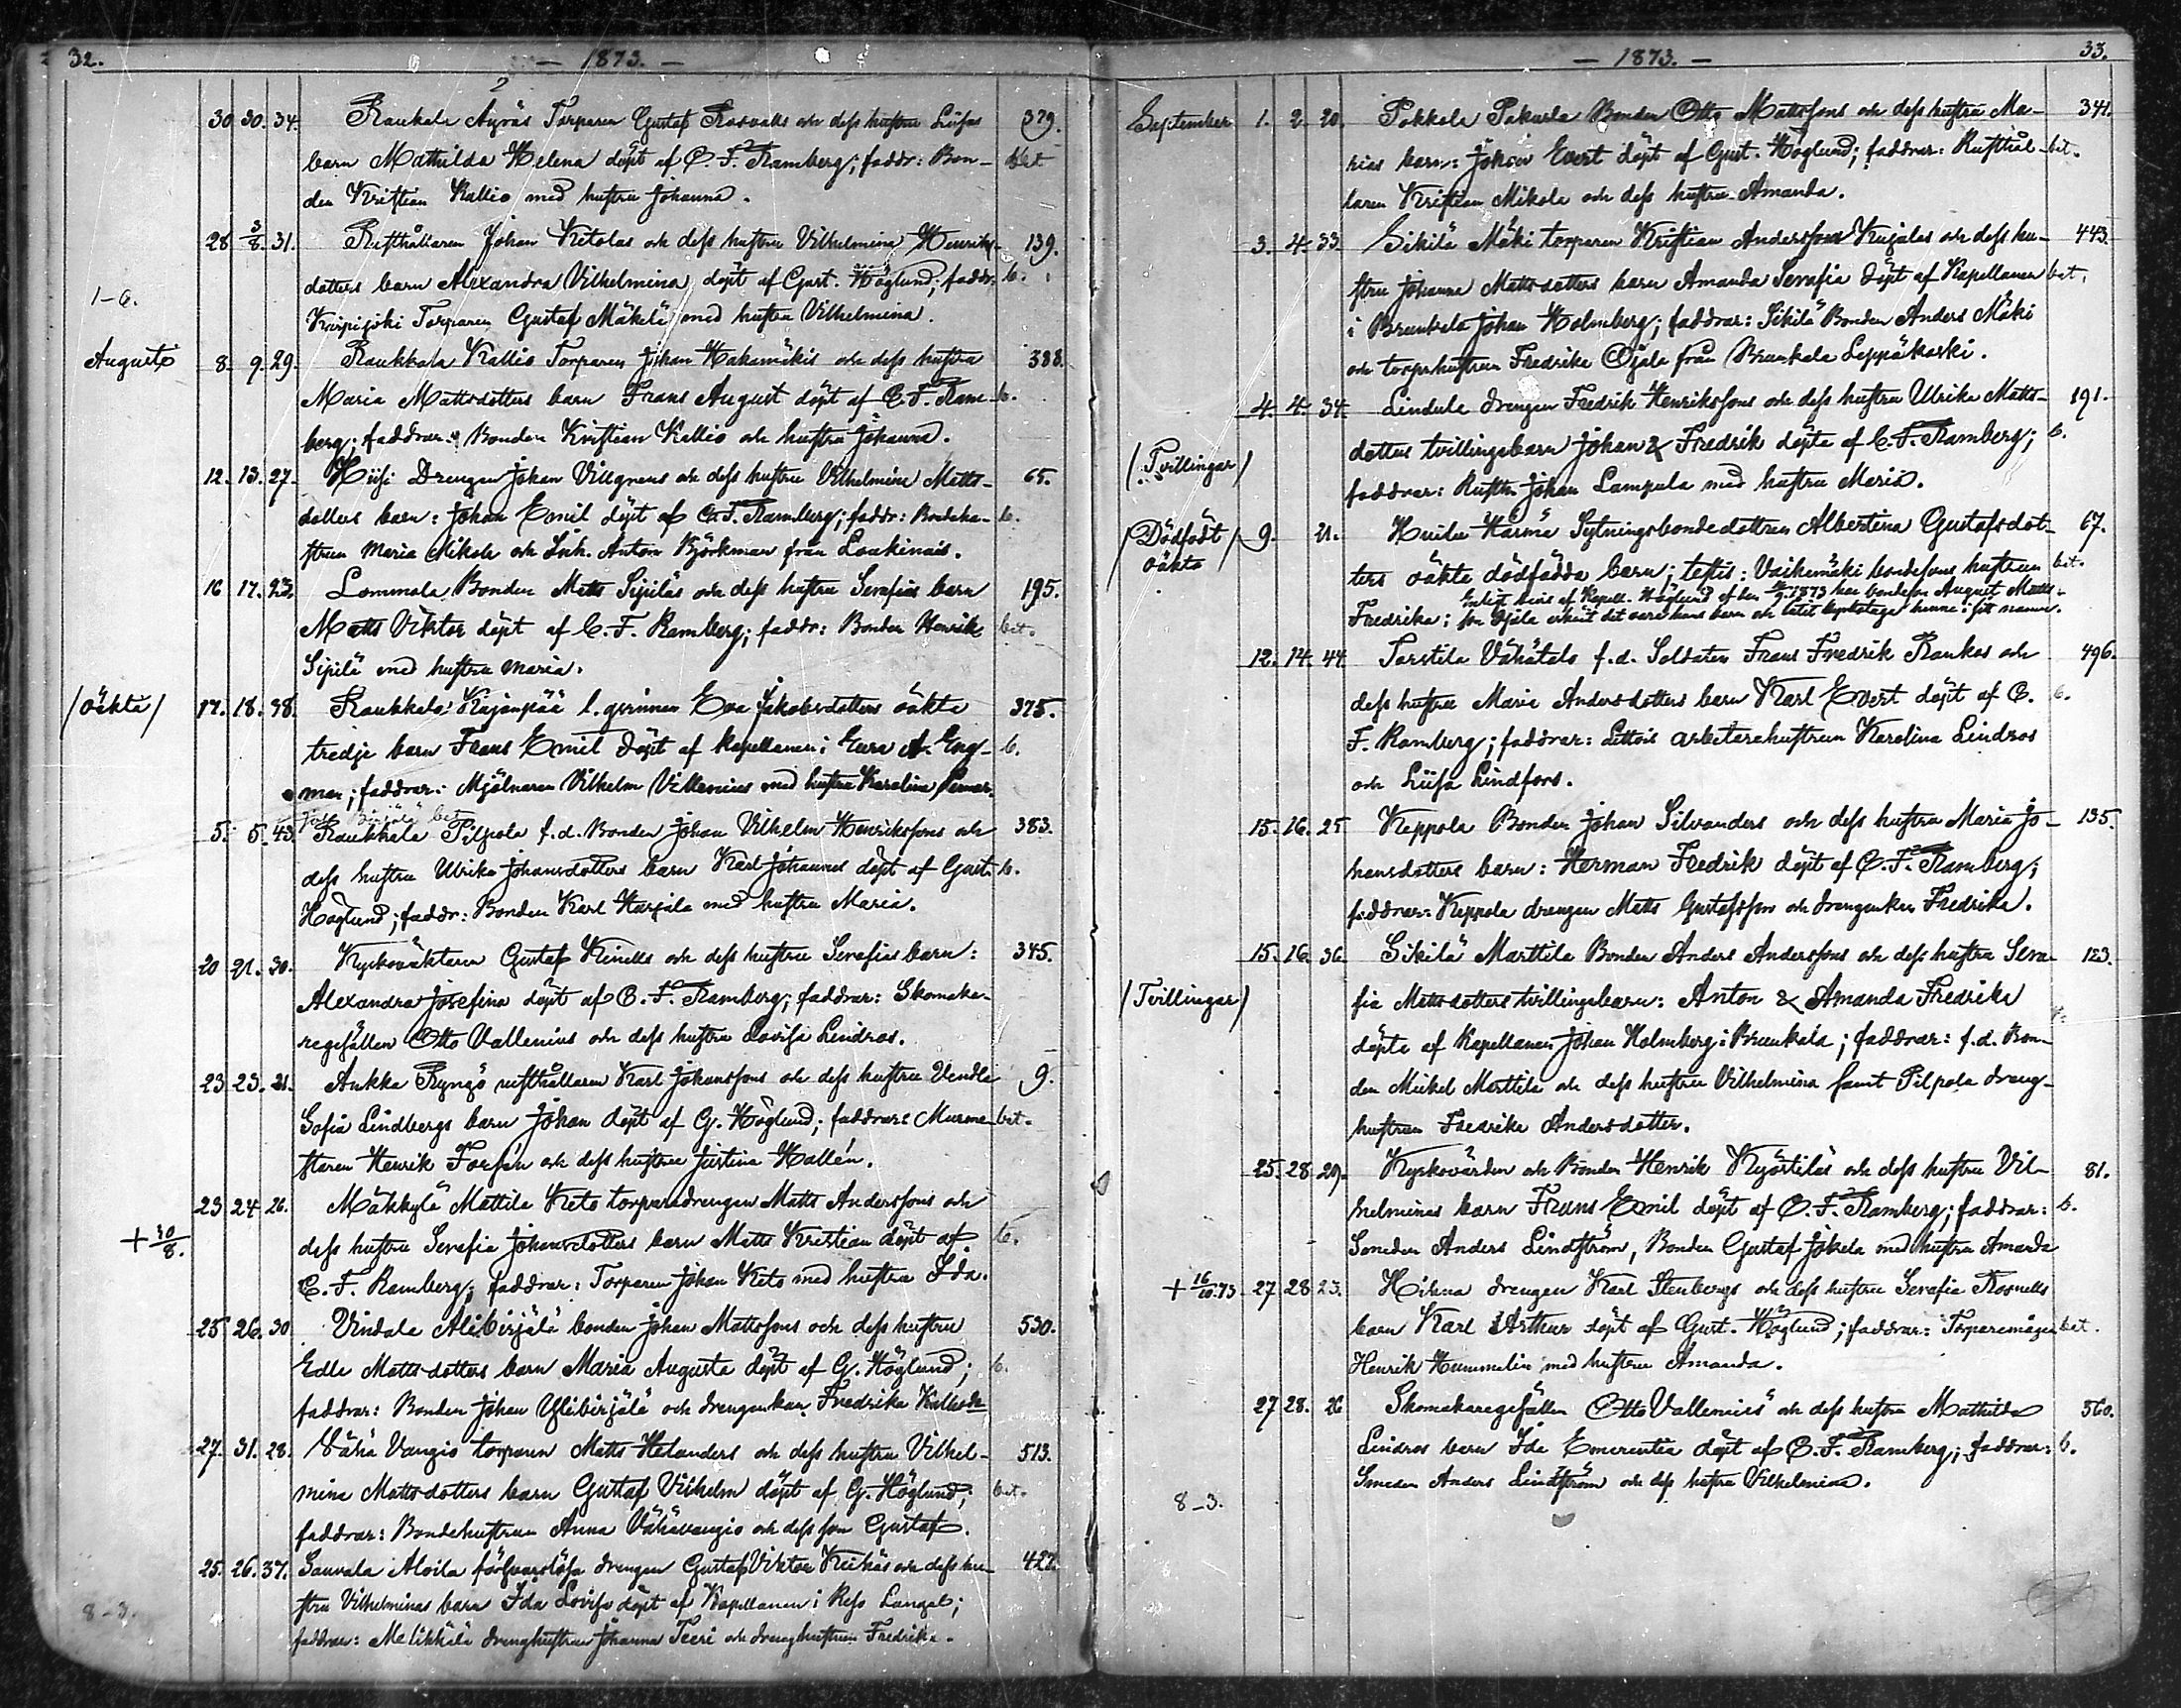 32. — 1873. —
2
30 30. 34. Raukkala Äyräs Torparen Gustaf Rosvalls och dess hustru Liisas 379.
barn Mathilda Helena döpt af C. F. Ramberg; faddr: Bon- bet
den Kristian Kallio med hustru Johanna.
28 3/8. 31. Rusthållaren Johan Ketolas och dess hustru Vilhelmina Henriks- 139.
dotters barn Alexandra Vilhelmina döpt af Gust. Höglund; faddr: b.
1-6.
Torparen Gustaf Mäkelä med hustru Vilhelmina.
Augusti 8. 9. 29. Raukkala Kallio Torparen Johan Hakamäkis och dess hustru 388.
Maria Mattsdotters barn Frans August döpt af C. F. Ram- b.
berg; faddrar: Bonden Kristian Kallio och hustru Johanna.
12. 13. 27. Hiisi Drengen Johan Villgrens och dess hustru Vilhelmina Matts- 65.
dotters barn: Johan Emil döpt af C. F. Ramberg; faddr: Bondehu- b.
strun Maria Mikola och Inh. Anton Björkman från Loukinais.
16 17. 23. Lommola Bonden Matts Sipiläs och dess hustru Serafias barn 195.
Matts Viktor döpt af C. F. Ramberg; faddr: Bonden Henrik bet.
Sipilä med hustru Maria.
/oäkta/ 17. 18. 38. Raukkala Kajanpää l. qvinnan Eva Jakobsdotters oäkta 375.
tredje barn Frans Emil döpt af kapellanen i Eura A. Eng- b.
man; faddrar: Mjölnaren Vilhelm Vallenius med hustru Karolina
5. 5. 43. Raukkala Pilpola f.d. Bonden Johan Vilhelm Henrikssons och 383.
dess hustru Ulrika Johansdotters barn Karl Johannes döpt af Gust. b.
Höglund; faddr: Bonden Karl Harjula med hustru Maria.
20 21. 30. Kyrkoväktaren Gustaf Kinells och dess hustru Serafias barn: 345.
Alexandra Josefina döpt af C. F. Ramberg; faddrar: Skomaka-
regesällen Otto Vallenius och dess hustru Lovisa Lindros.
23 23. 21. Aukka Ryngö rusthållaren Karl Johanssons och dess hustru Vendla 9.
Sofia Lindbergs barn Johan döpt af G. Höglund; faddrar: Murmä- bet.
staren Henrik Forsén och dess hustru Justina Hallén.
23 24 26. Mäkkylä Mattila Keto torparedrengen Matts Anderssons och
+ 30/8. dess hustru Serafia Johansdotters barn Matts Kristian döpt af b.
C. F. Ramberg; faddrar: Torparen Johan Keto med hustru Ida.
25 26. 30 Vindala Alibirjälä bonden Johan Mattssons och dess hustru 530.
Edla Matts-dotters barn Maria Augusta döpt af G. Höglund; b.
faddrar: Bonden Johan Ylibirjälä och drengenkan Fredrika
27. 31. 28. Vähä Vangio torparen Matts Helanders och dess hustru Vilhel- 513.
mina Matts-dotters barn Gustaf Vilhelm döpt af G. Höglund; bet.
faddrar: Bondehustrun Anna Vähävangio och dess son Gustaf.
25. 26. 37. Sauvala Alvila försvarslösa drengen Gustaf Viktor och dess hu- 422.
stru Vilhelminas barn Ida Lovisa döpt af Kapellanen i
8-3.
faddrar: drenghustrun Johanna Teeri och drenghustrun Fredrika.
— 1873. — 33.
September 1. 2. 20. Pokkola Pakurla Bonden Otto Mattssons och dess hustru Ma- 341.
rias barn: Johan Evert döpt af Gust. Höglund; faddrar: Rusthål- bet.
laren Kristian Mikola och dess hustru Amanda.
3. 4. 33. Sikilä Mäki torparen Kristian Anderssons Kujalas och dess hu- 443.
stru Johanna Mattsdotters barn Amanda Serafia döpt af Kapellanen bet.
i Brunkala Johan Holmberg; faddrar: Sikilä Bonden Anders Mäki
och torparhustrun Fredrika Ojala från Brunkala Leppäkoski.
4. 4. 34. Lindula drengen Fredrik Henrikssons och dess hustru Ulrika Matts- 191.
/Tvillingar/ dotters tvillingsbarn Johan & Fredrik döpta af C. F. Ramberg; b.
faddrar: Rusth. Johan Lampula med hustru Maria.
/Dödfödt oäkta/ 9. 21. Härmä Sytningsbondedottren Albertina Gustafsdot- 67.
ters oäkta dödfödda barn; testis: Vaihemäki bondesons hustrun bet.
Enligt bevis af Kapell. Höglund af den 1873 har bondeson August Matts-
Fredrika; son Ojala erkänt det vara hans barn och låtit kyrkotaga henne i sitt namn.
12. 14. 44 Torstila Vähätalo f.d. Soldaten Frans Fredrik Raukas och 496.
dess hustru Maria Andersdotters barn Karl Evert döpt af C. b.
F. Ramberg; faddrar: Lettois arbetarehustrun Karolina Lindros
och Liisa Lindfors.
15. 16. 25 Keppola Bonden Johan Silvanders och dess hustru Maria Jo- 135.
hansdotters barn: Herman Fredrik döpt af C. F. Ramberg;
faddrar: Keppola drengen Matts Gustafsson och drengenkan Fredrika.
15. 16. 36. Sikilä Marttila Bonden Anders Anderssons och dess hustru Sera- 123.
/Tvillingar/ fia Mattsdotters tvillingsbarn: Anton & Amanda Fredrika
döpta af Kapellanen Johan Holmberg i Brunkala; faddrar: f.d. Bon-
den Mickel Marttila och dess hustru Vilhelmina samt Pilpola dreng-
hustrun Fredrika Andersdotter.
25. 28. 29. Kyrkovärden och Bonden Henrik Kyöstiläs och dess hustru Vil- 81.
helminas barn Frans Emil döpt af C. F. Ramberg; faddrar: b.
Smeden Anders Lindström, Bonden Gustaf Jokela med hustru Amanda
+ 16/10.73 27 28 23. Hihna drengen Karl Stenbergs och dess hustru Serafia Rosnells
barn Karl Arthur döpt af Gust. Höglund; faddrar: Torparemågen bet.
Henrik Hummelin med hustru Amanda.
27 28. 26 Skomakaregesällen Otto Vallenius och dess hustru Mathilda 360.
Lindros barn Ida Emerentia döpt af C. F. Ramberg; faddrar: b.
Smeden Anders Lindström och dess hustru Vilhelmina.
8-3.